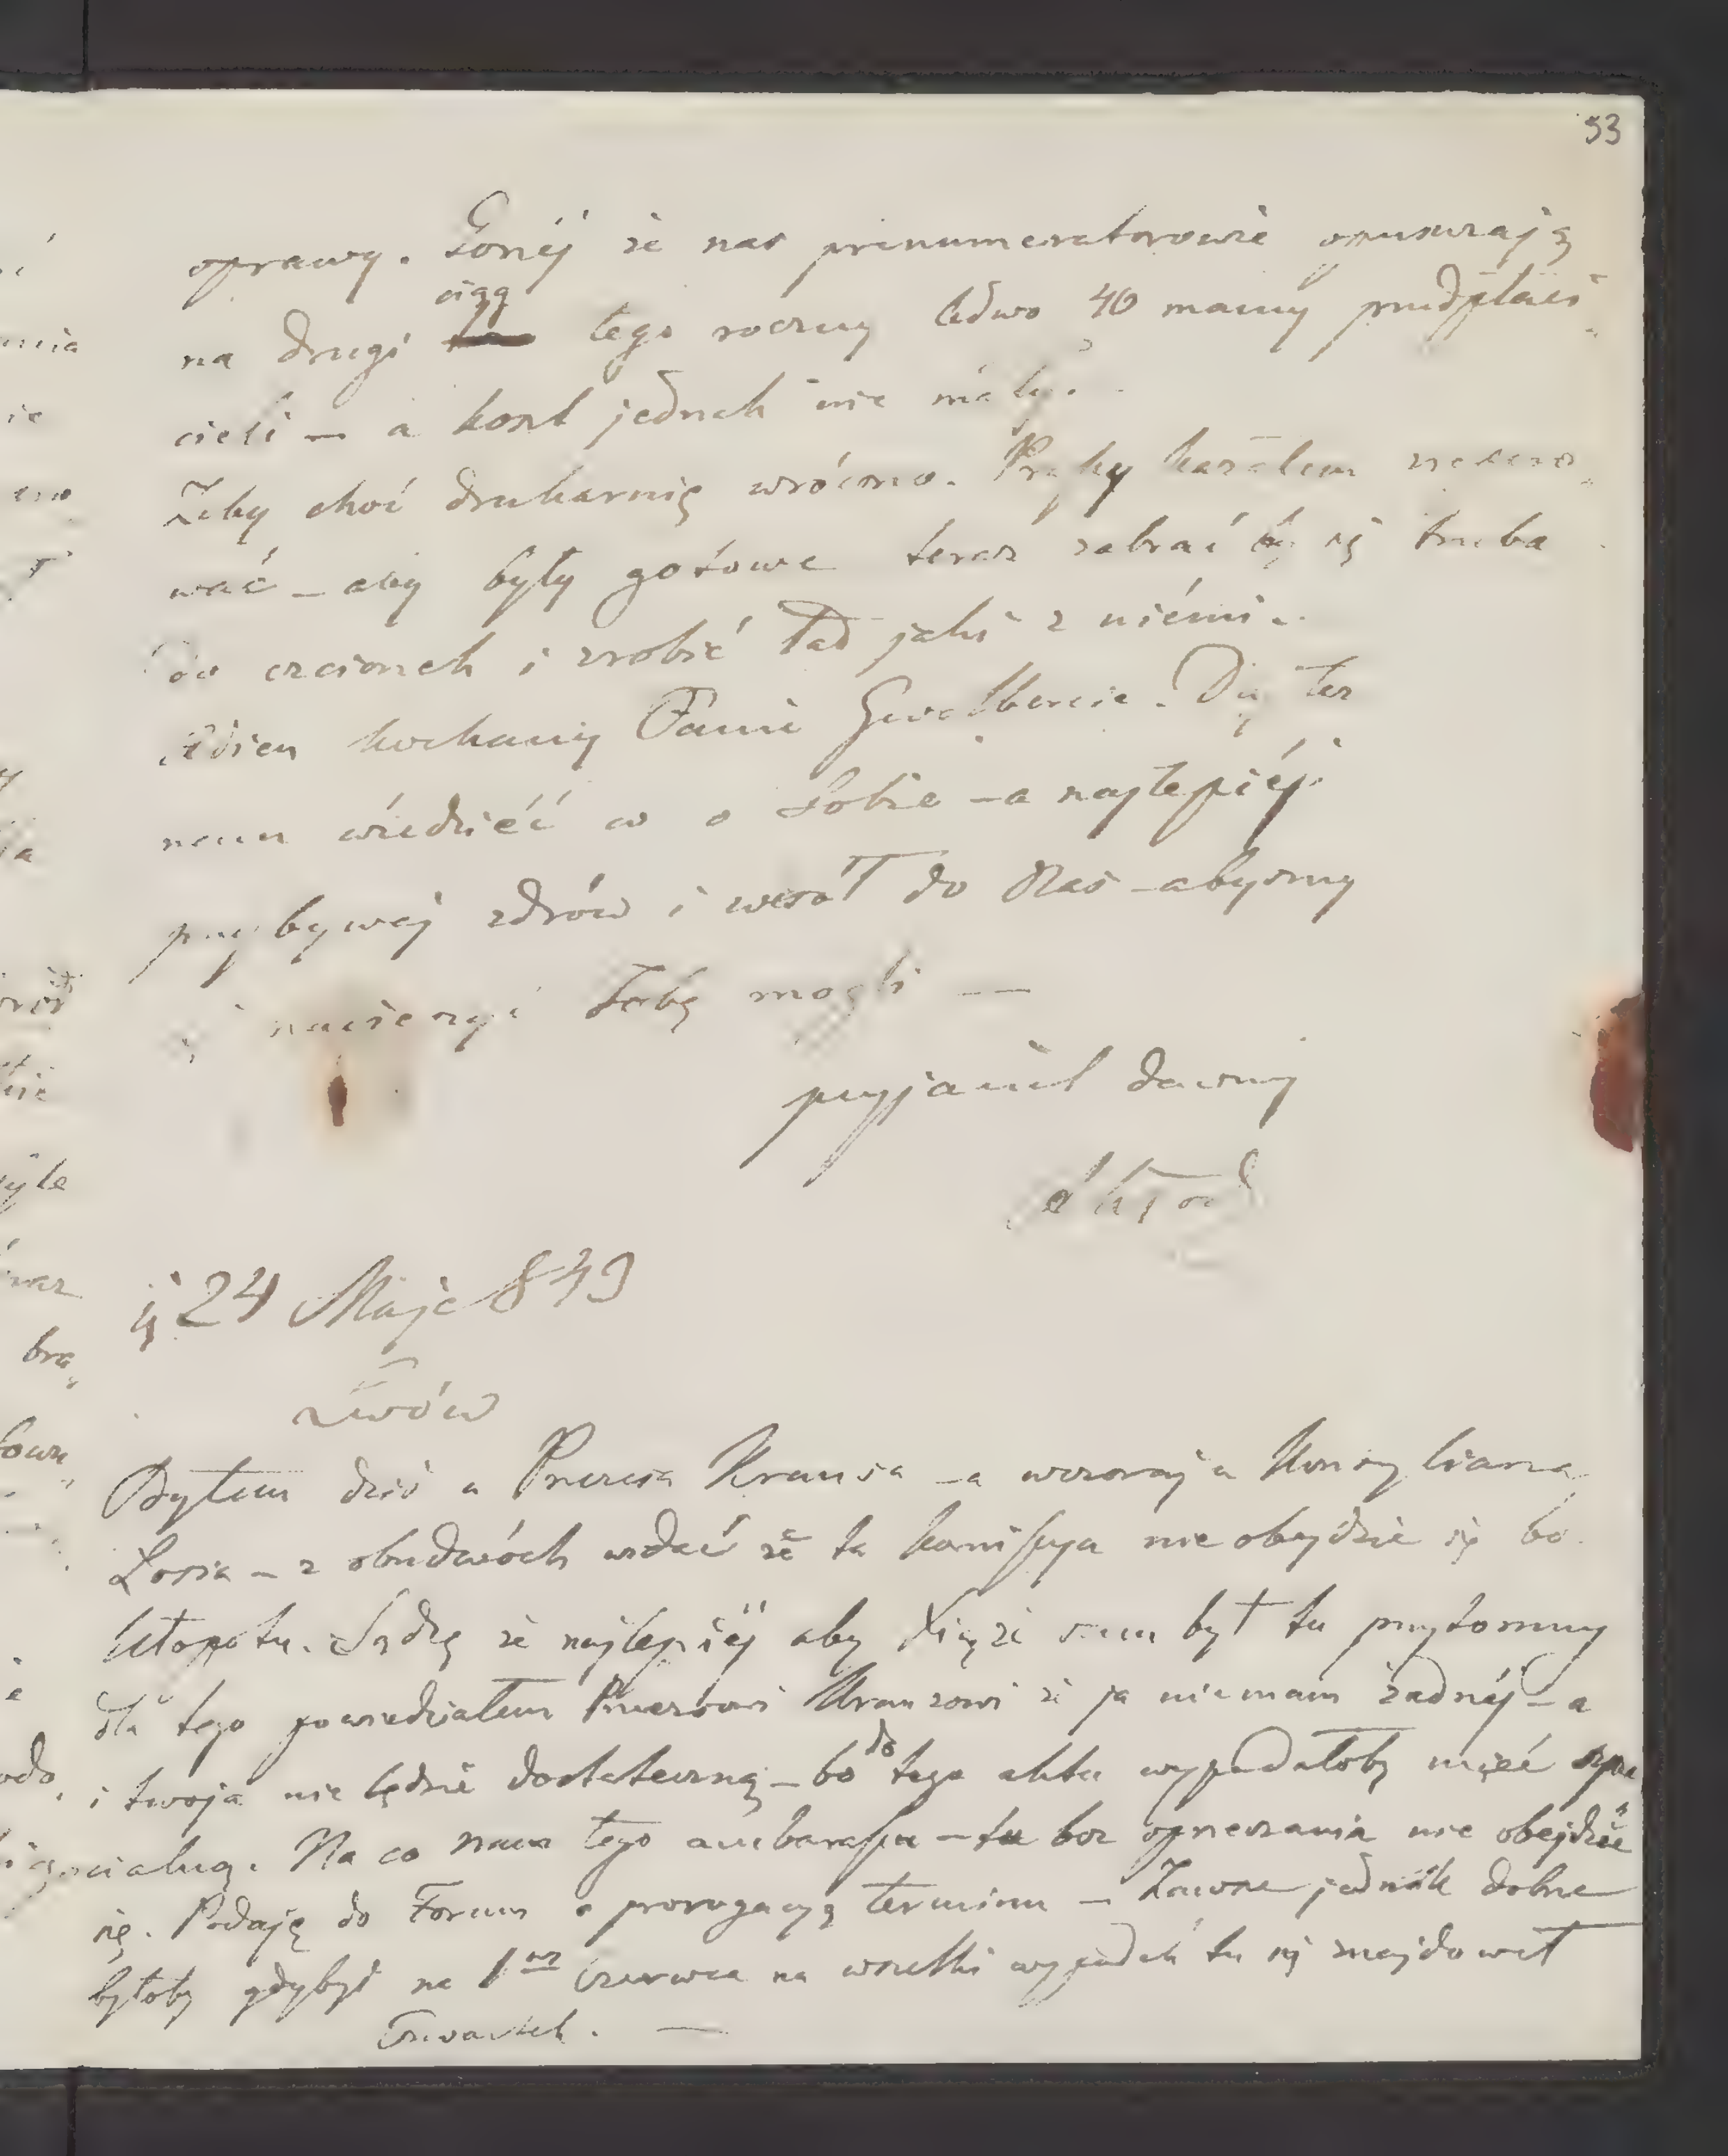 53
oprawy. Goréj że nas prenumeratorowie opuszczają
na drugi ciąg tego roczny ledwo 40 mamy przedpłaci
cieli — a koszt jednak nie mały.
Żeby choć drukarnię wrócono. Prasy kazałem
wać — aby były gotowe teraz zabrać się trzeba
do czcionek i zrobić ład jakiś z niémi.
Adieu kochany Panie Gwalbercie. Daj też
nam wiedziéć co o Sobie — a najlepiéj
przybywaj zdrów i wesół do Nas — abyśmy
się nacieszyć Tobą mogli —
przyjaciel dawny
d 24 Maja 843
Lwów
Byłem dziś u Prezesa Krausa — a wczoraj u Konsyliarza
Losia — z obudwóch widać że ta komissya nie obejdzie się bo
kłopotu. Sądzę że najlepiéj aby Xiąże sam był tu przytomny
dla tego powiedziałem Prezesowi Krauzowi że ja niemam żadnéj — a
i twoja nie będzie dostateczną — bo do tego aktu wypadałoby mieć spe
cialną. Na co nam tego ambarassu — tu bez opieczania nie obejdzie
się. Podaję do Forum o prorogacyą terminu — Zawsze jednak dobrze
byłoby gdybyś na 1 Czerwca na wszelki wypadek tu się znajdował
Czwartek. —